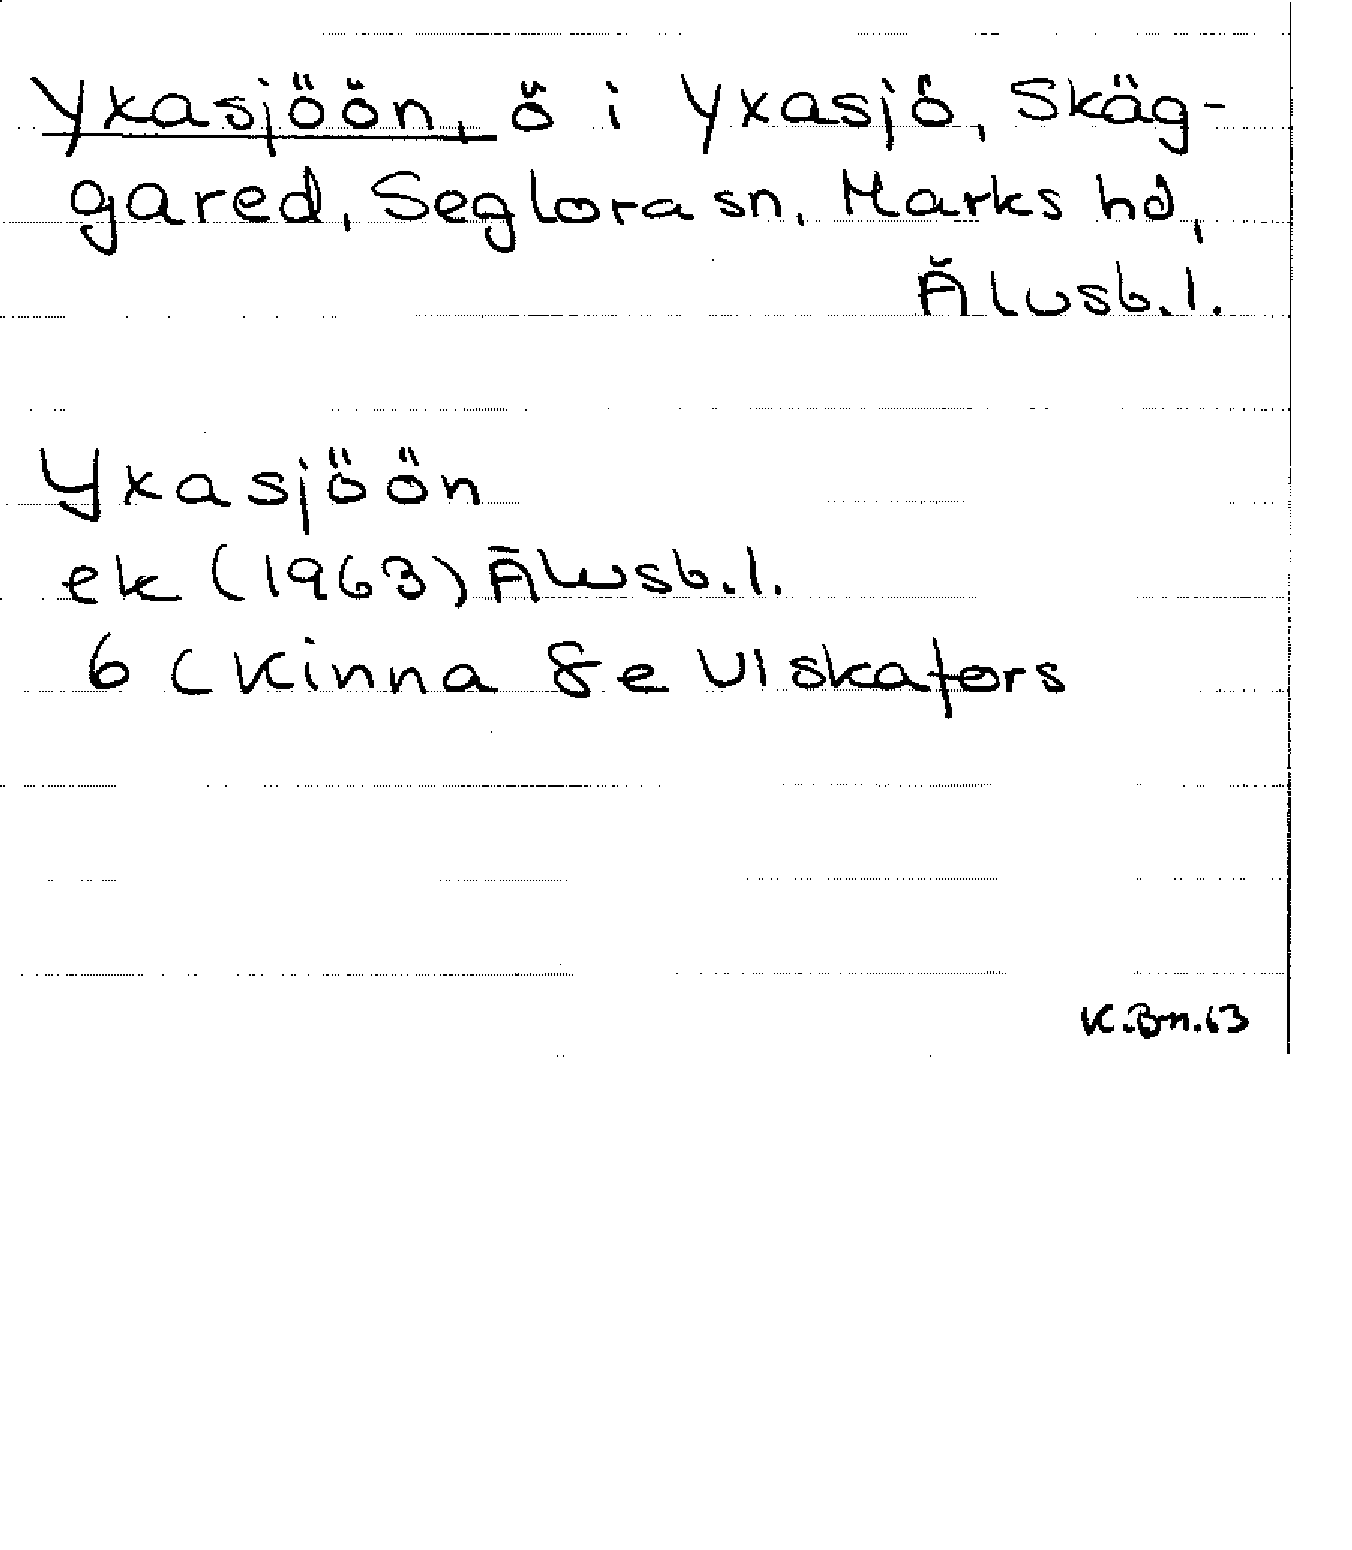 Yxasjöön, ö i Yxasjö, Skäg-
gared, Seglora sn, Marks hd,
Älvsb.l.
Yxasjöön
ek (1963) Älvsb.l.
6 C Kinna 8e Viskafors
K.Bm.63